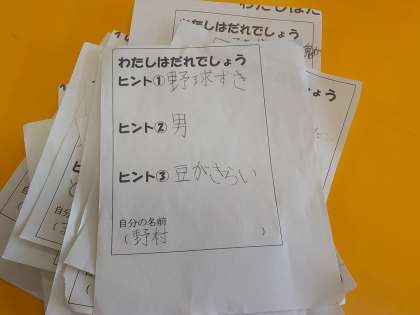 わたしはだれでしょう
ヒント① 野球ずき
ヒント② 男
ヒント③ 豆がきらい
自分の名前
(野村 )
わたしはだれでしょう
わたしはだ